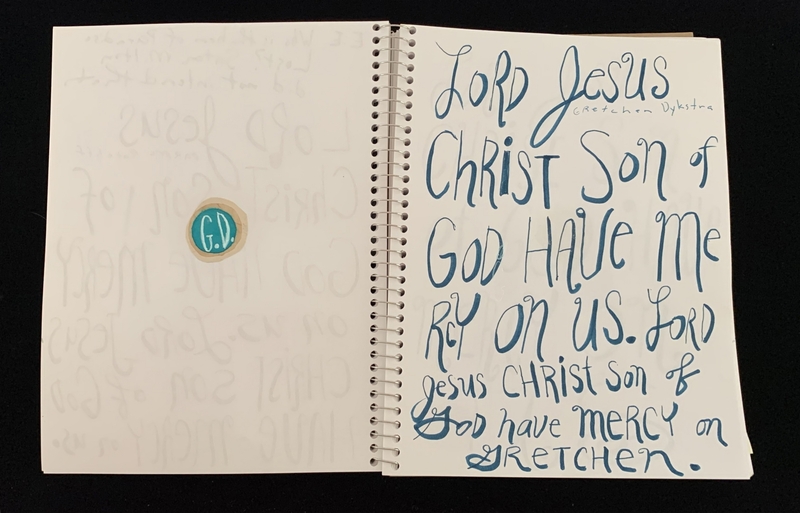 G.D.
LORD Jesus
Gretchen Dykstra
CHRIST Son of
GOD HAVE Me
RCY on us. LORD
Jesus CHRist Son of
GOD have MERCY on
GRETCHEn.